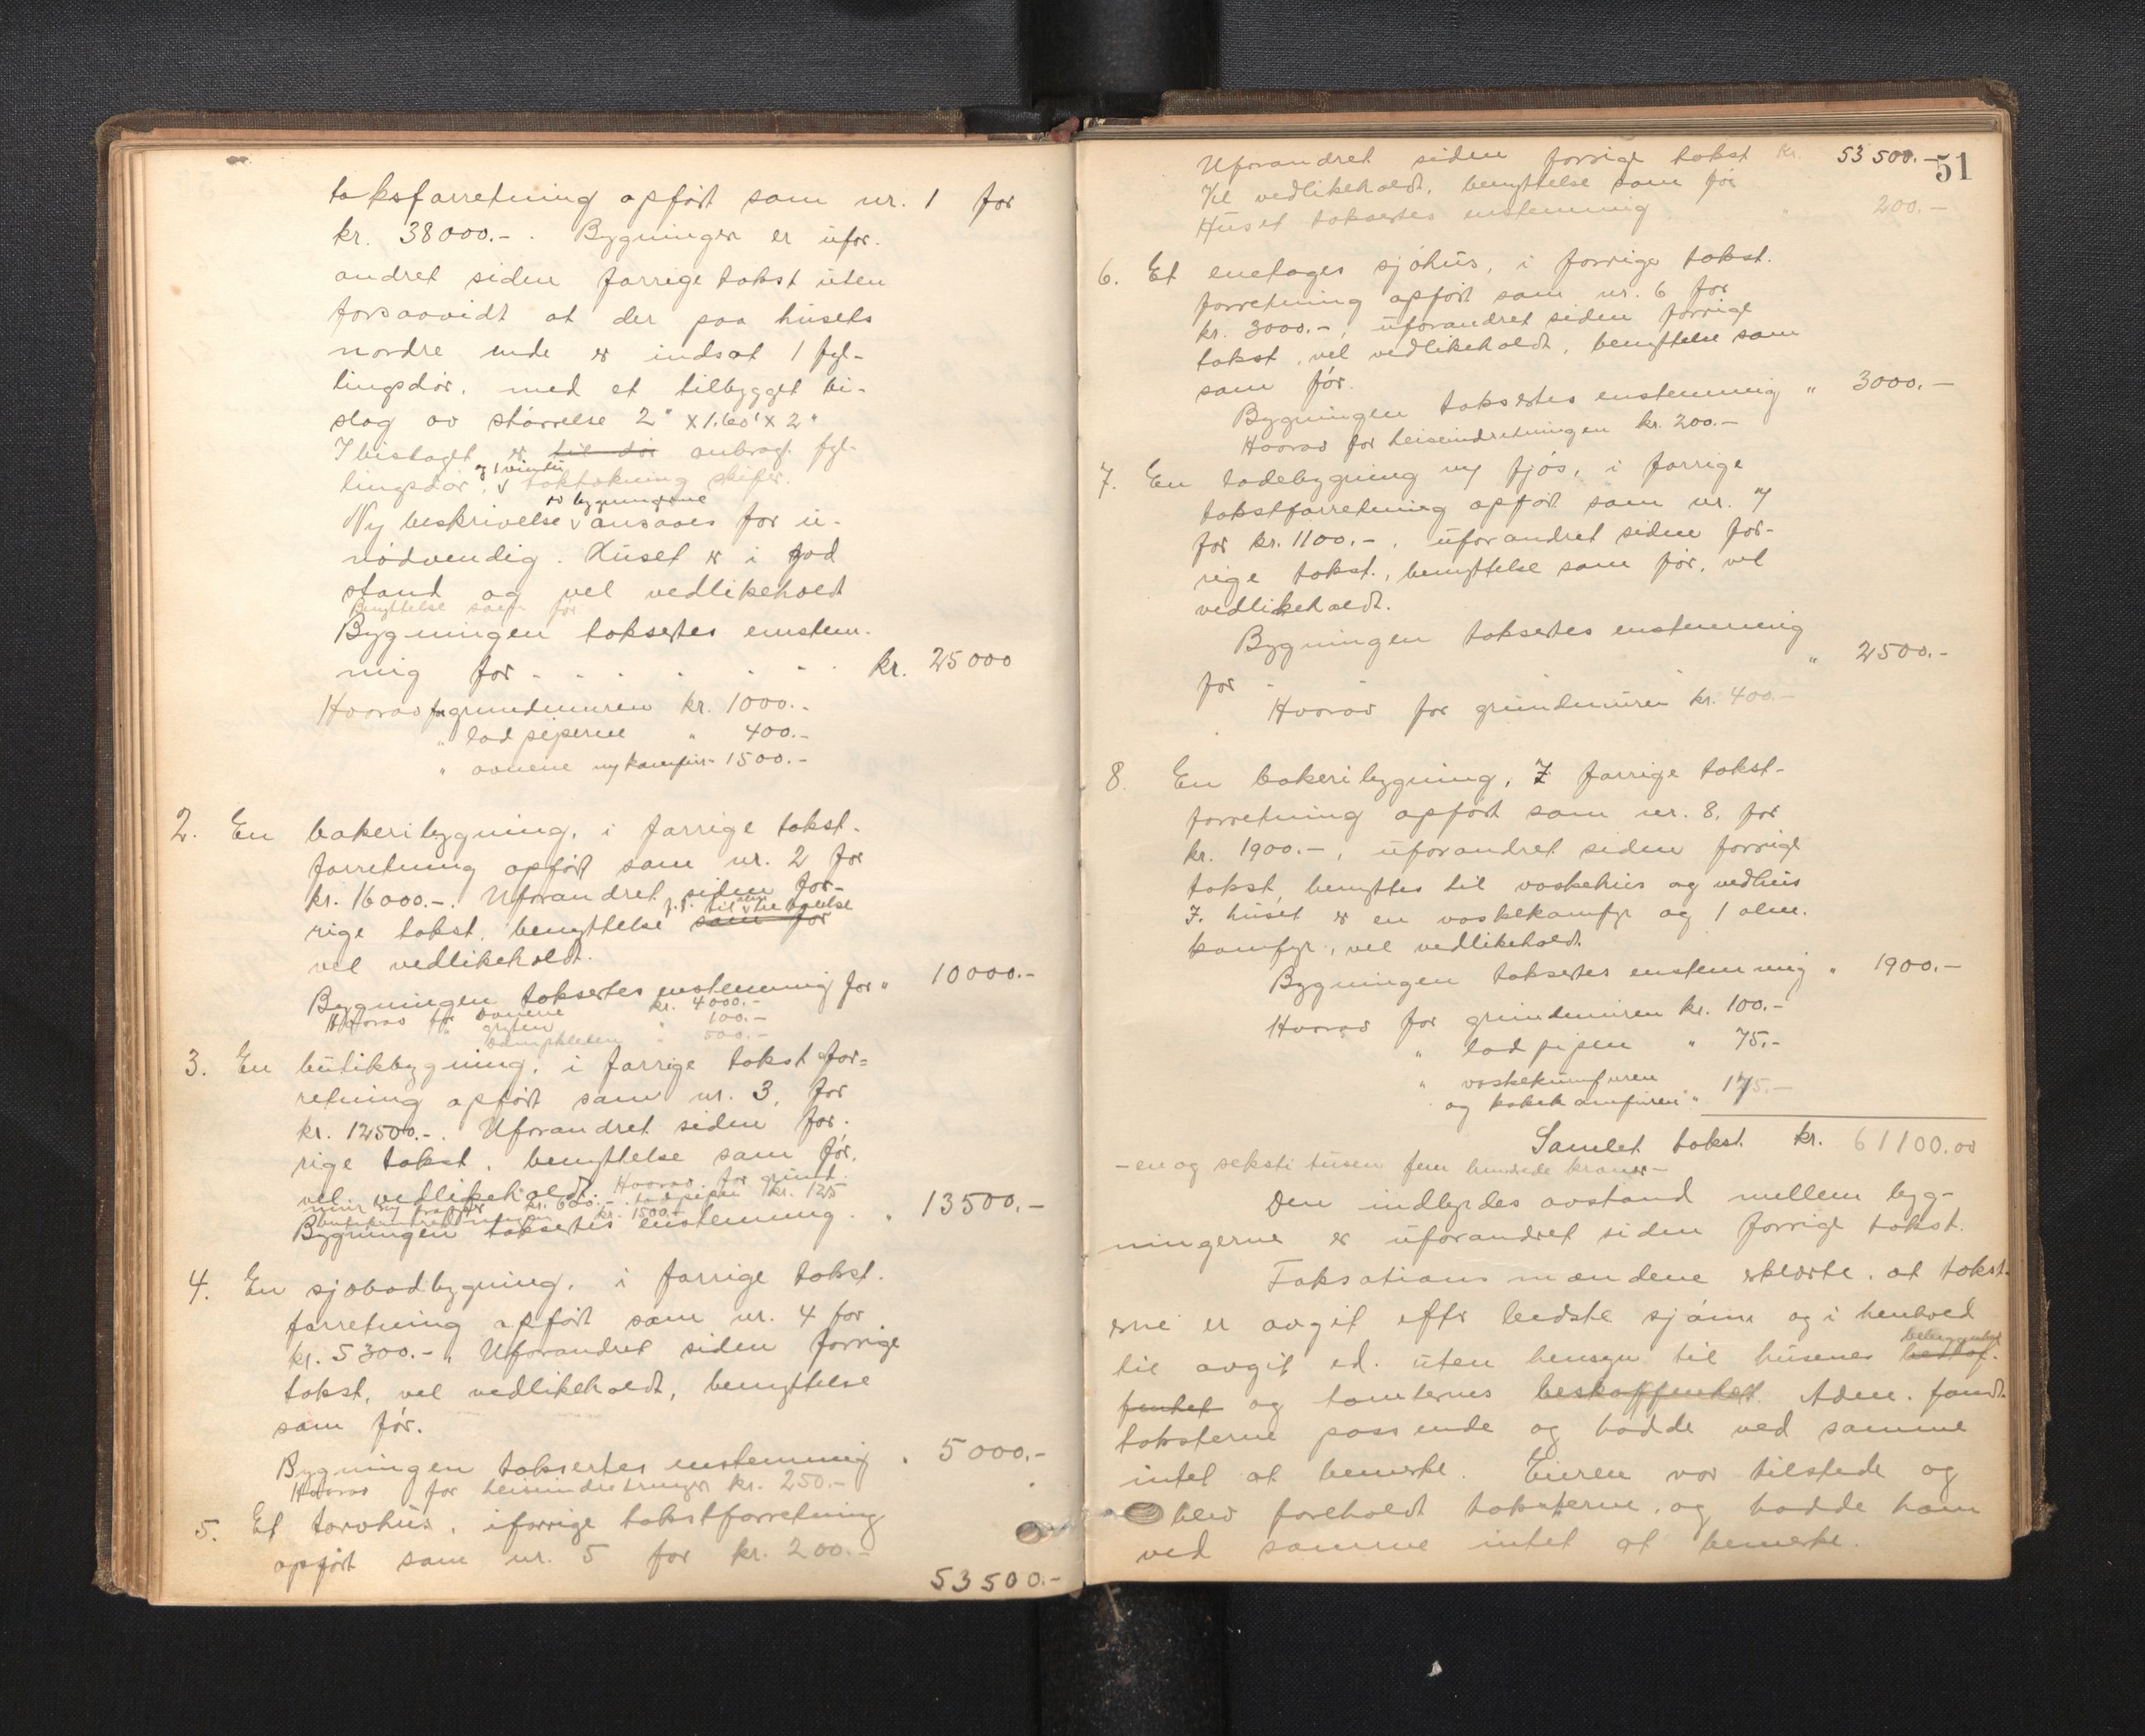 takstforretning opført som nr. 1 for
kr. 38000.- . Bygningen er ufor-
andret siden forrige takst uten
forsaavidt at der paa husets
nordre ende er indsat 1 fyl-
lingsdør, med et tilbygget bi-
slag av størrelse 2" x 1.60' x 2"
I bislaget er til dør anbragt fyl-
og 1 vindu
lingsdør, v taktækning skifer.
av bygningerne
Ny beskrivelse v ansaaes for u-
nødvendig. Huset er i god
stand og vel vedlikeholdt
Benyttelse som før
Bygningen taksertes enstem-
mig for - - - - - - kr. 25000
Hvorav for grundmuren kr. 1000.-
" lodpiperne " 400.-
" ovnene og komfur - 1500.-
2. En bakeribygning, i forrige takst-
forretning opført som nr. 2 for
kr. 16000.-. Uforandret siden for-
rige takst, benyttelse som før
vel vedlikeholdt.
Bygningen taksertes enstemmig for " 10000.-
Hvorav for ovnene kr. 4000.-
" gryten " 100.-
" 500.-
3. En butikbygning, i forrige takstfor-
retning opført som nr. 3, for
kr. 12500.-. Uforandret siden for-
rige takst, benyttelse som før,
vel vedlikeholdt. Hvorav for grund-
mur og trapper kr. 600.- lodpipen kr. 125
kr. 1500.-
Bygningen taksertes enstemmig . " 13500.-
4. En sjøbodbygning, i forrige takst-
forretning opført som nr. 4 for
kr. 5300.-, Uforandret siden forrige
takst, vel vedlikeholdt, benyttelse
som før.
Bygningen taksertes enstemmig " 5000.-
Hvorav for heiseindretningen kr. 250.-
5. Et torvhus, i forrige takstforretning
opført som nr. 5 for kr. 200.-
53500.-
51
Uforandret siden forrige takst kr. 53500.-
Vel vedlikeholdt, benyttelse som før
Huset taksertes enstemmig " 200.-
6. Et enetages sjøhus, i forrige takst-
forretning opført som nr. 6 for
kr. 3000.-, uforandret siden forrige
takst, vel vedlikeholdt, benyttelse som
som før.
Bygningen taksertes enstemmig " 3000.-
Hvorav for heiseindretningen kr. 200.-
7. En ladebygning og fjøs, i forrige
takstforretning opført som nr. 7
for kr. 1100.-, uforandret siden for-
rige takst, benyttelse som før, vel
vedlikeholdt.
Bygningen taksertes enstemmig
for - " 2500.-
Hvorav for grundmuren kr. 400.-
8. En bakeribygning, I forrige takst-
forretning opført som nr. 8. for
kr. 1900.-, uforandret siden forrige
takst, benyttes til vaskehus og vedhus
I huset er en vaskekomfyr og 1 alm.
komfyr, vel vedlikeholdt.
Bygningen taksertes enstemmig " 1900.-
Hvorav for grundmuren kr. 100.-
" lodpipen " 75.-
" vaskekomfuren
og kokekomfuren " 175.-
Samlet takst kr. 61100.00
- en og seksti tusen fem hundrede kroner -
Den indbyrdes avstand mellem byg-
ningerne er uforandret siden forrige takst.
Taksationsmændene erklærte, at takst-
erne er avgit efter bedste skjøn og i henhold
til avgit ed. uten hensyn til husenes
beliggenhet
og tomternes beskaffenhet. Adm. fandt
taksterne passende og hadde ved samme
intet at bemerke. Eieren var tilstede og
blev foreholdt taksterne, og hadde han
ved samme intet at bemerke.